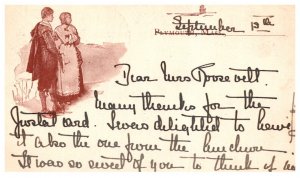 September 13th
Plymouth, Mass.
Dear Mrs Roosevelt.
Many thanks for the
postal card. I was delighted to have
it also the one from the luncheon
It was so sweet of you to think of me